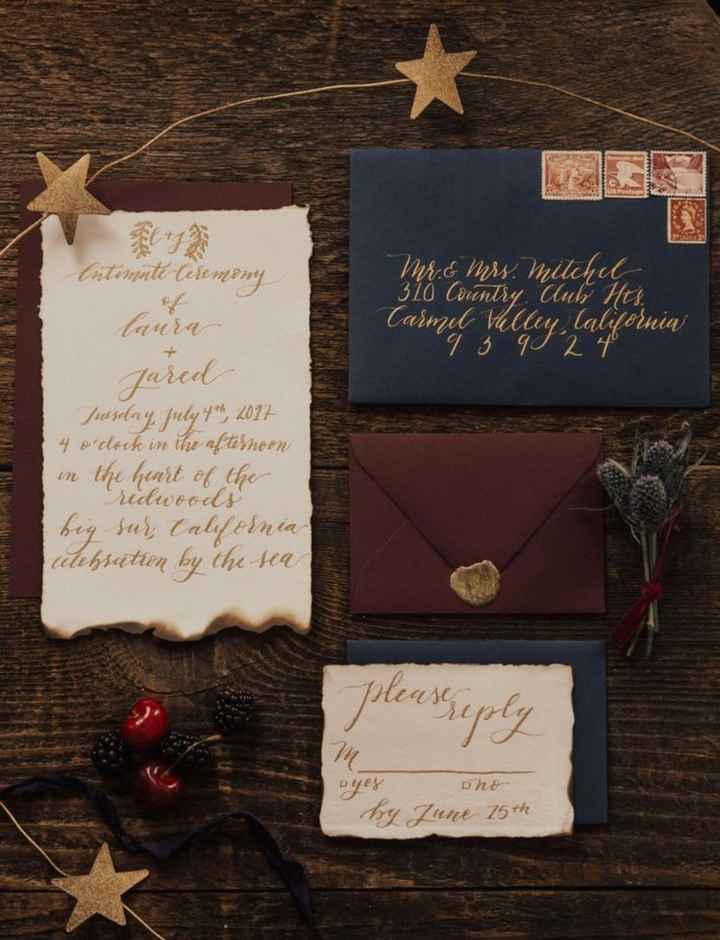 L + J
Intimate Ceremony
of
laura
+
jared
Tuesday, July 4th, 2017
4 o'clock in the afternoon
in the heart of the
redwoods
big sur, California
celebration by the sea
Mr. & Mrs. Mitchel
310 Country Club Hts.
Carmel Valley, California
93924
please
reply
M
yes no
by June 15th